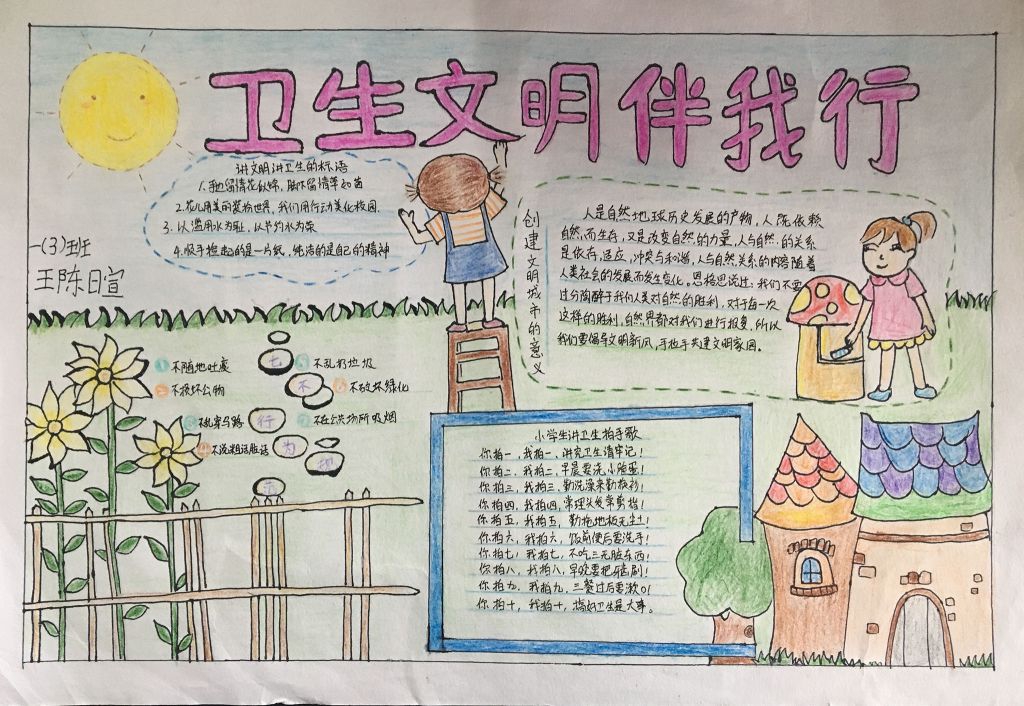 卫生文明伴我行
讲文明讲卫生的标语
1.手也留情花似锦，脚下留情草如茵
2.花儿用美丽装扮世界，我们用行动美化校园.
3.以滥用水为耻，以节约水为荣
4.顺手捡起的是一片纸，纯洁的是自己的精神
一(3)班
王陈日宣
创建文明城市的意义
人是自然地球历史发展的产物，人既依赖
自然而生存，又是改变自然的力量，人与自然的关系
是依存，适应，冲突与和谐，人与自然关系的内容随着
人类社会的发展而发生变化。恩格思说过：我们不要
过分陶醉于我们人类对自然的胜利，对于每一次
这样的胜利，自然界都对我们进行报复，所以
我们要倡导文明新风，手拉手共建文明家园。
七
不
行
为
规
范
不随地吐痰
不乱扔垃圾
不损坏公物
不破坏绿化
不乱穿马路
不在公共场所吸烟
不说粗话脏话
小学生讲卫生拍手歌
你拍一，我拍一，讲究卫生请牢记！
你拍二，我拍二，早晨要洗小脸蛋！
你拍三，我拍三，勤洗澡来勤换衫！
你拍四，我拍四，常理头发常剪指！
你拍五，我拍五，勤拖地板无尘土！
你拍六，我拍六，饭前便后要洗手！
你拍七，我拍七，不吃三无脏东西！
你拍八，我拍八，早晚要把牙齿刷！
你拍九，我拍九，三餐过后要漱口！
你拍十，我拍十，搞好卫生是大事。